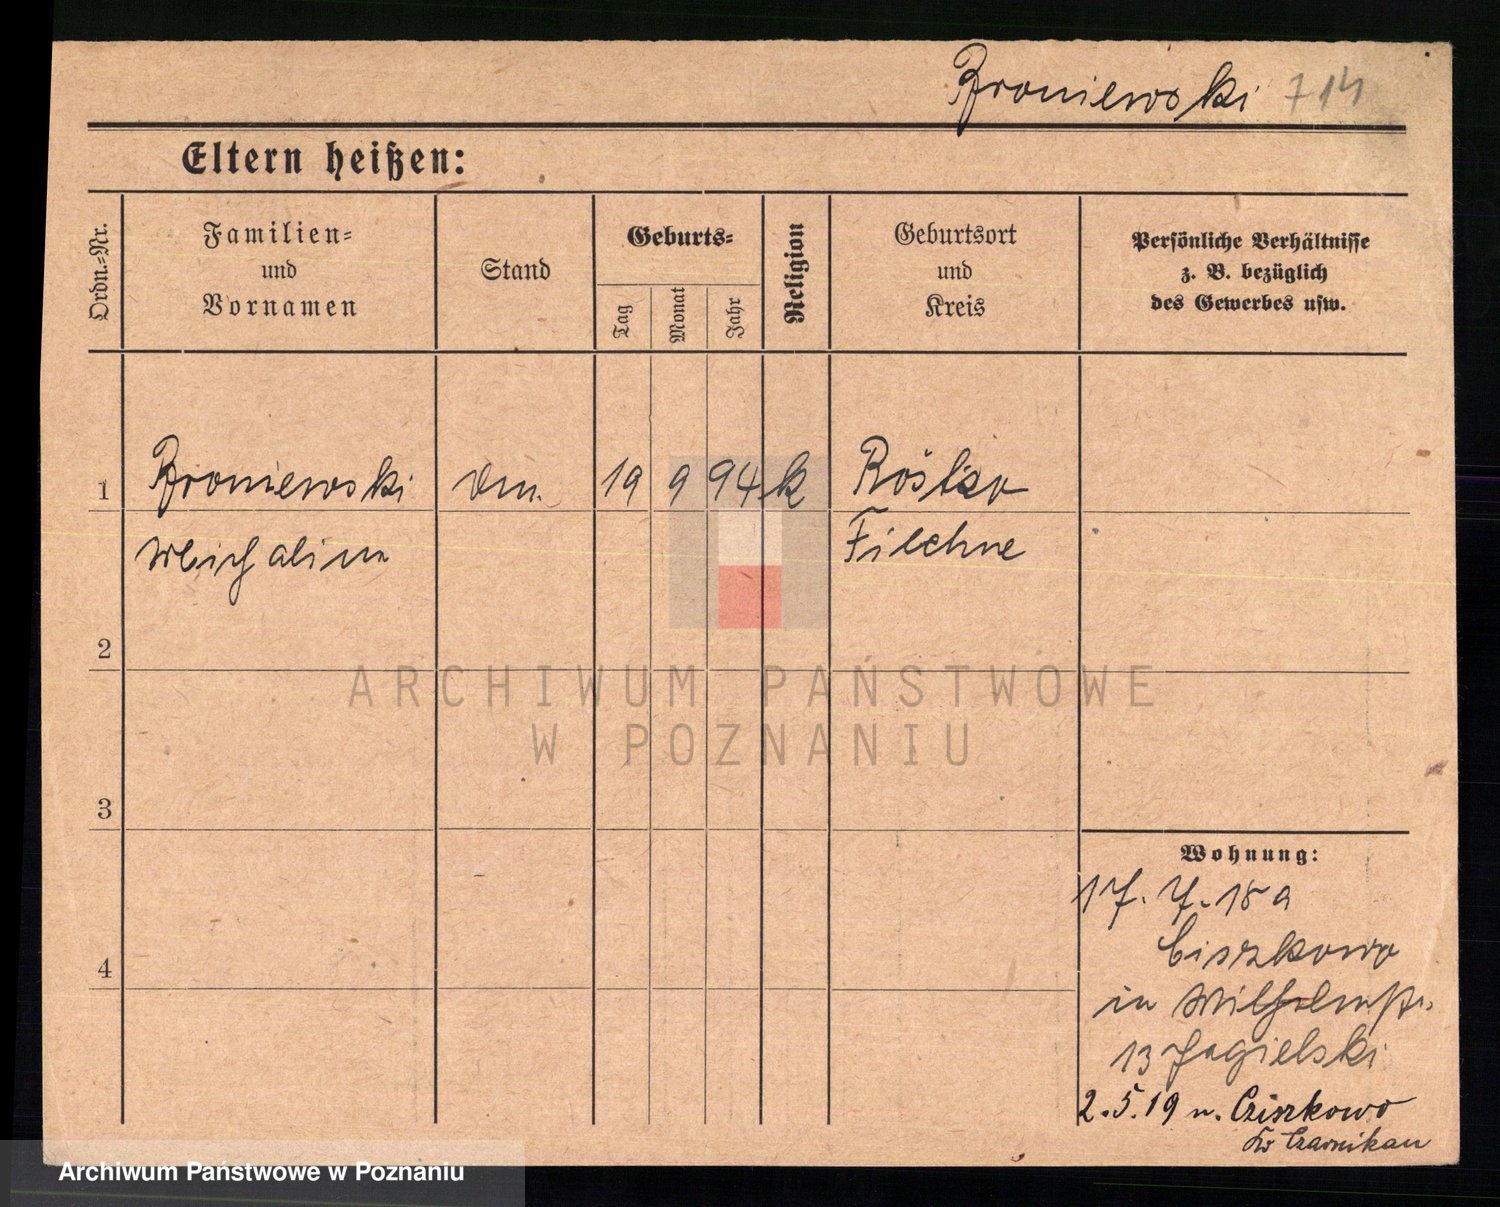 Broniewski 714
Eltern heißen:
Ordn.-Nr.
Familien- und Vornamen
Stand
Geburts-
Tag
Monat
Jahr
Religion
Geburtsort und Kreis
Persönliche Verhältnisse
z. B. bezüglich
des Gewerbes usw.
1 Broniewski 19 9 94 k
Michalina Filehne
2
3
4
ARCHIWUM PAŃSTWOWE
W POZNANIU
Wohnung:
17. 7. 18 a
Ciszkowo
in Wilhelmstr.
13 Jagielski
2.5.19 n. Cziszkowo
Kr Czarnikau
Archiwum Państwowe w Poznaniu